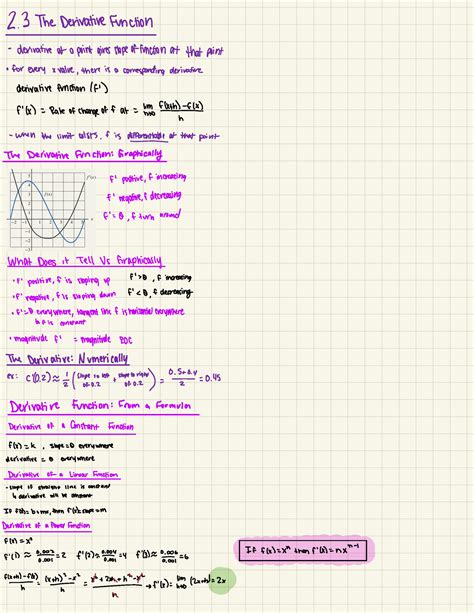 2.3 The Derivative Function
- derivative at a point gives slope of function at that point
• for every x value, there is a corresponding derivative
derivative function (f')
f'(x) = Rate of change of f at = lim h→0 f(x+h)-f(x) / h
- when the limit exists, f is differentiable at that point
The Derivative Function: Graphically
f' positive, f increasing
f' negative, f decreasing
f'=0, f turn around
What Does it Tell Us Graphically
• f' positive, f is sloping up f'>0, f increasing
• f' negative, f is sloping down f'<0, f decreasing
• f'=0 everywhere, tangent line f is horizontal everywhere
& f is constant
• magnitude f' = magnitude ROC
The Derivative: Numerically
ex: C'(0.2) ≈ 1/2 (slope to left of 0.2 + slope to right of 0.2) = 0.5+0.4 / 2 = 0.45
Derivative Function: From a Formula
Derivative of a Constant Function
f(x)=k, slope=0 everywhere
derivative = 0 everywhere
Derivative of a Linear Function
• slope of straight line is constant
& derivative will be constant
If f(x)=b+mx, then f'(x)=slope=m
Derivative of a Power Function
F(x)=xⁿ
f'(1) ≈ 0.002/0.001 = 2 f'(2) ≈ 0.004/0.001 = 4 f'(3) ≈ 0.006/0.001 = 6
If f(x)=xⁿ then f'(x)=nxⁿ⁻¹
f(x+h)-f(x) / h = (x+h)²-x² / h = x²+2xh+h²-x² / h → f'(x)= lim h→0 (2x+h)=2x